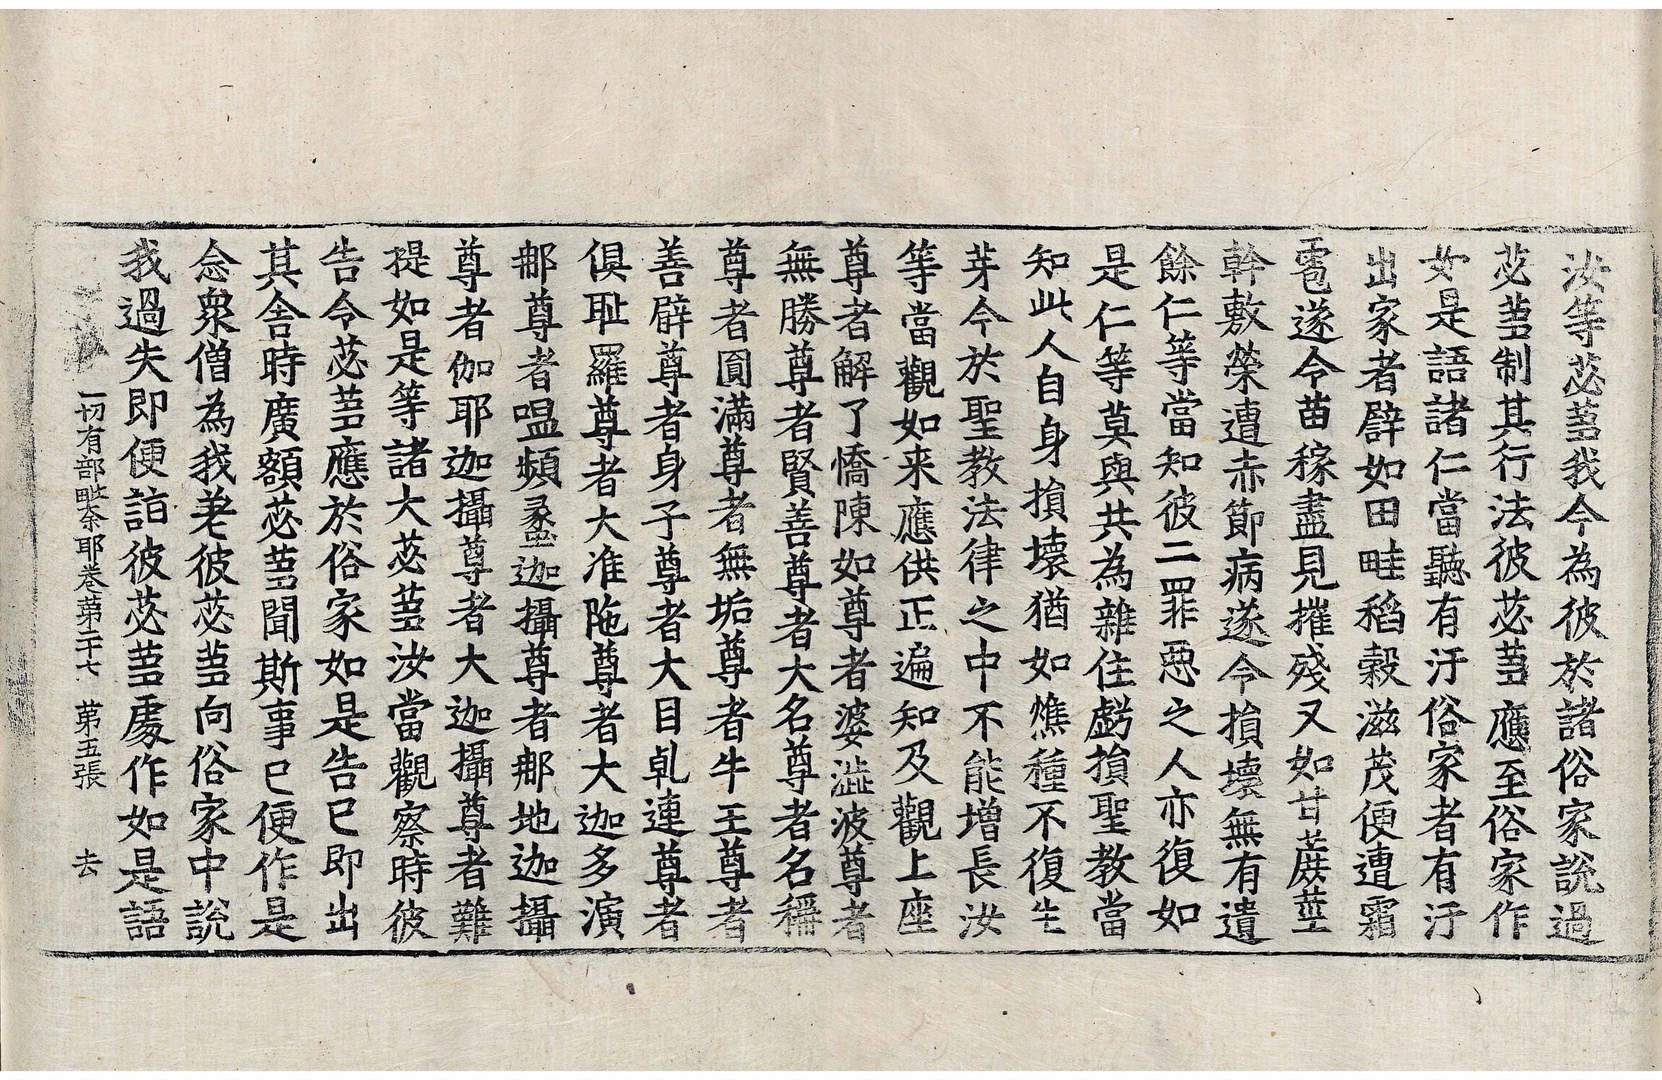 汝等苾蒭我今為彼於諸俗家說過
苾蒭制其行法彼苾蒭應至俗家作
如是語諸仁當聽有汙俗家者有汙
出家者譬如田畦稻穀滋茂便遭霜
雹遂令苗稼盡見摧殘又如甘蔗莖
幹敷榮遭赤節病遂令損壞無有遺
餘仁等當知彼二罪惡之人亦復如
是仁等莫與共為雜住虧損聖教當
知此人自身損壞猶如燋種不復生
芽今於聖教法律之中不能增長汝
等當觀如来應供正遍知及觀上座
尊者解了憍陳如尊者婆澁波尊者
無勝尊者賢善尊者大名尊者名稱
尊者圓滿尊者無垢尊者牛王尊者
善臂尊者身子尊者大目乹連尊者
俱耻羅尊者大准陁尊者大迦多演
那尊者嗢頻螽迦攝尊者那地迦攝
尊者伽耶迦攝尊者大迦攝尊者難
提如是等諸大苾蒭汝當觀察時彼
告令苾蒭應於俗家如是告已即出
其舍時廣額苾蒭聞斯事已便作是
念衆僧為我差彼苾蒭向俗家中說
我過失即便詣彼苾蒭處作如是語
一切有部毗奈耶卷第二十七 第五張 去